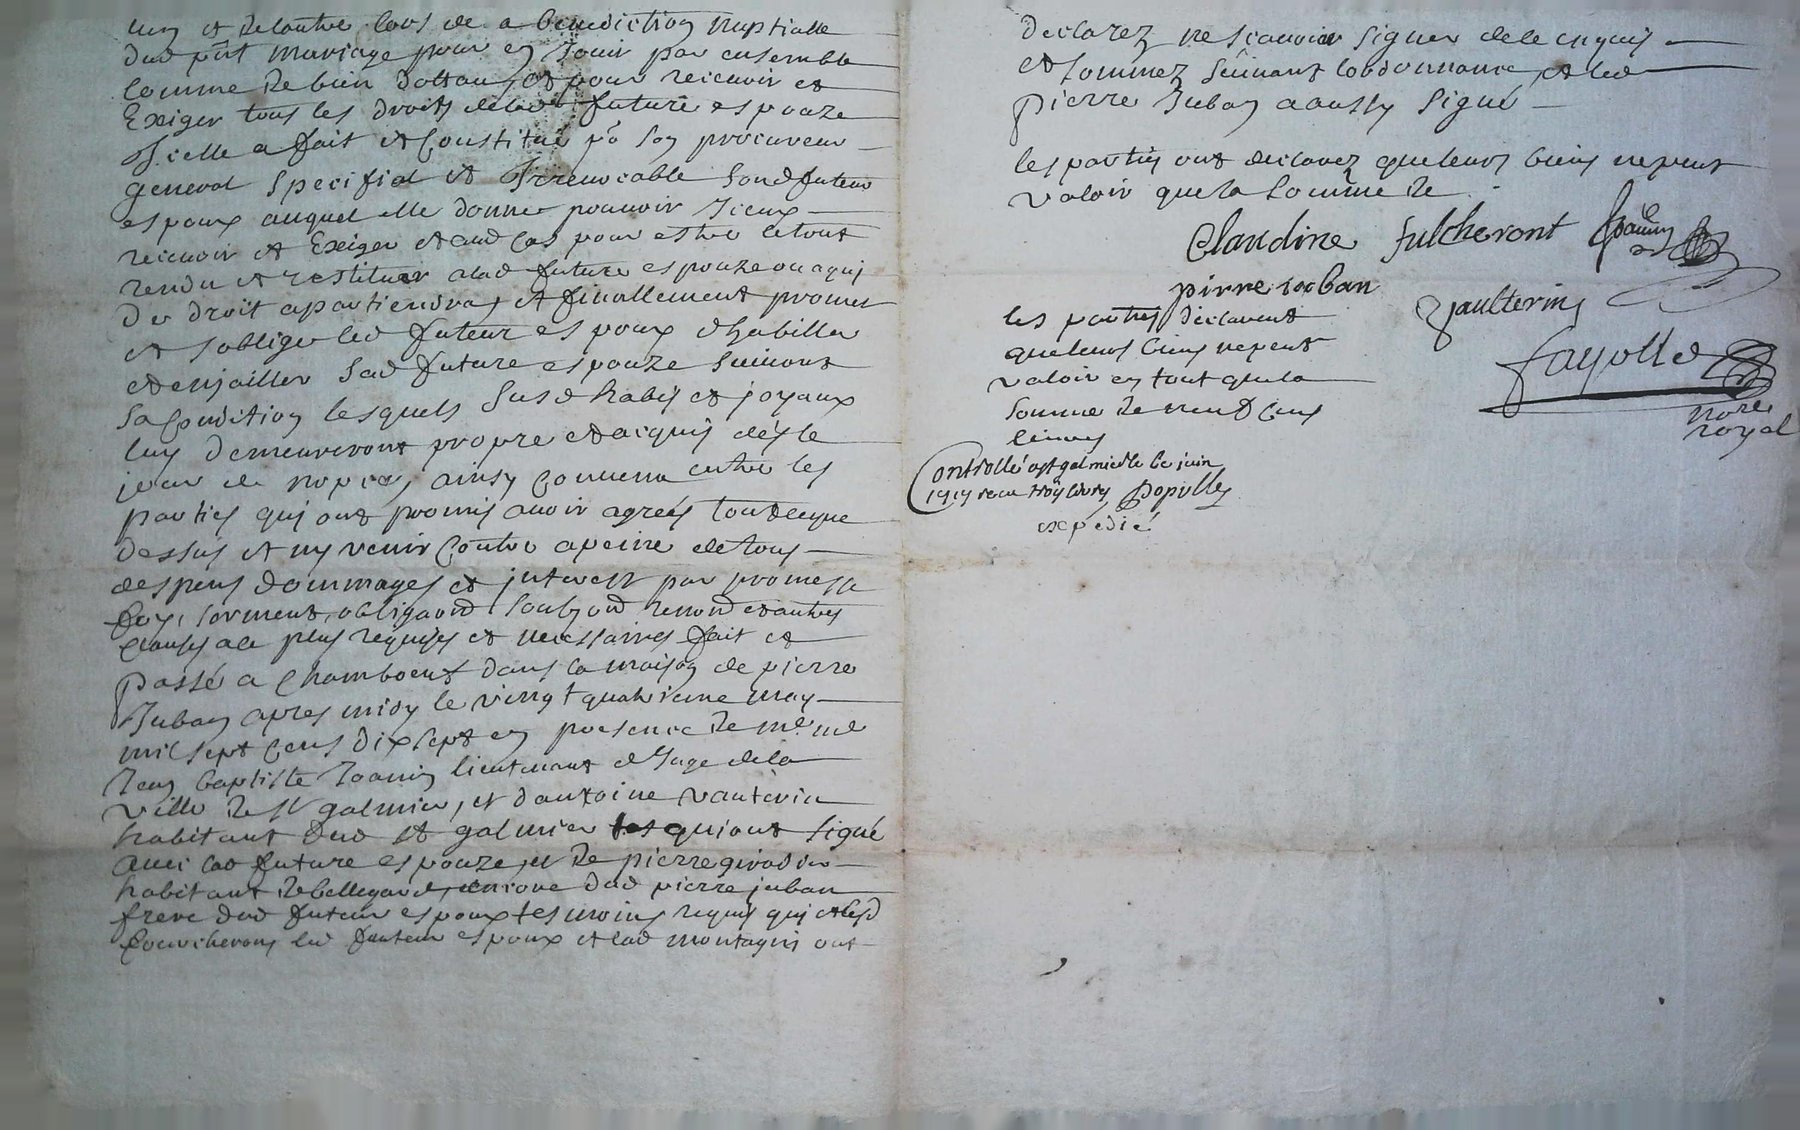 lun et de lautre lors de a benediction nuptialle
dud pnt mariage pour en Jouir par ensemble
comme de bien dottaux, et pour recevoir et
Exiger tous les droits de lad future espouze
Jcelle a fait et Constitué po son procureur
general special et Jrrevocable sond futeur
espoux auquel elle donne pouvoir Jceux
recevoir et Exiger et aud cas pour estre le tout
rendu et restituer a lad future espouze ou a qui
de droit apartiendra, et finallement promet
et soblige led futeur espoux dhabiller
et enjailler sad future espouze suivant
sa Condition lesquels susd habis et joyaux
luy demeureront propre et acquis dés le
jour de nopces, ainsy Convenu entre les
parties qui ont promis avoir agrées tout ce que
dessus et ny venir Contre a peine de tous
despens dommages et jnterest par promesse
foy, serment, obligaond soubzond renond et autres
clauses a ce plus requises et necessaires fait et
passé a Chamboeuf dans la maison de pierre
Juban apres midy le vingt quatrieme may
mil sept Cens dix sept en presence de me
Jean baptiste Joanin lieutenant de Juge de la
ville de st galmier, et dantoine vauterin
habitant dud st galmier qui ont signé
avec lad future espouze, et de pierre girodier
habitant de bellegarde, encore dud pierre juban
frere dud futeur espoux tesmoins requis qui et lesd
fourcherons led futeur espoux et lad montagni ont
declarez ne scavoir signer de ce enquis
et sommez suivant lordonnance, et led
pierre Juban a aussy signé
les parties ont declarez que leurs biens ne peut
valoir que la somme de
Claudine fulcheront Joanin
pirre iouban
vaulterin
les parties declarent
que leurs biens ne peut
valoir en tout que la
somme de neuf Cens
livres
fayolle
nore
royal
Controllé a st galmier le juin
1717 receu trois livres
expédié